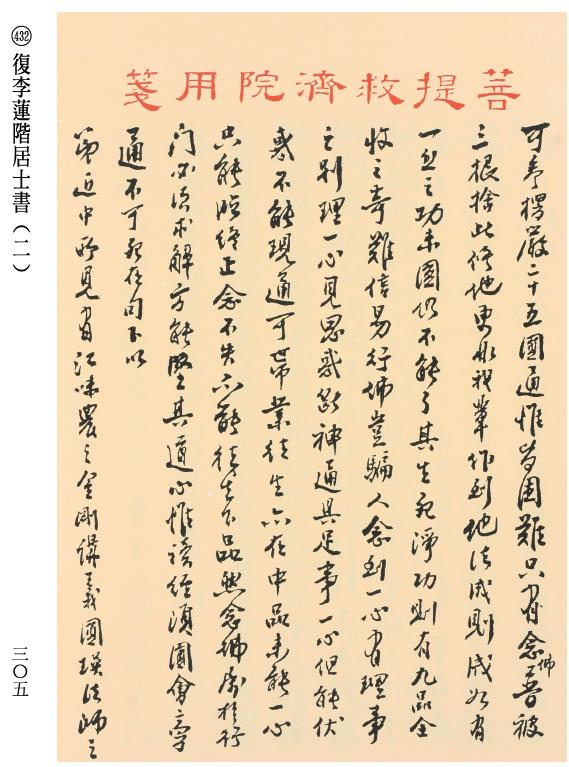 菩提救濟院用箋
可考楞嚴二十五圓通惟皆困難只有念佛普被
三根捨此修他更非我輩作到他法成則成如有
一息之功未圓仍不能了其生死淨功則有九品全
收之奇難信易行佛豈騙人念到一心有理事
之別理一心見思惑斷神通具足事一心但能伏
惑不能現通可帶業往生亦在中品未能一心
只能臨終正念不失亦能往生下品然念佛屬於行
門必須求解方能堅其道心惟讀經須圓會
通不可死在句下以
弟近中所見有江味農之金剛講義圓瑛法師之
㊷ 復李蓮階居士書（二）
三〇五